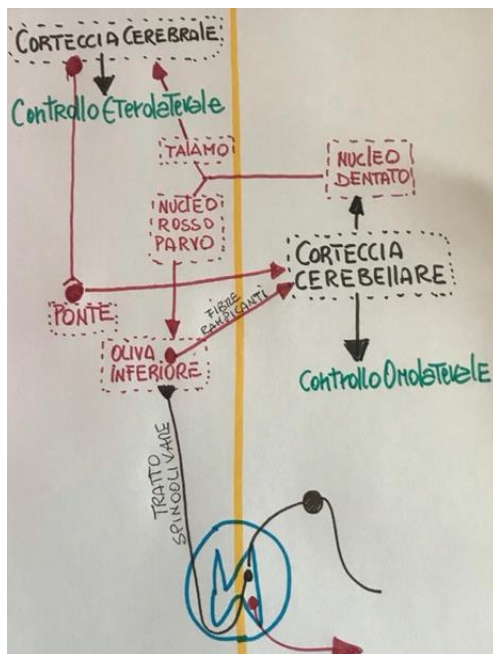 CORTECCIA CEREBRALE
Controllo Eterolaterale
TALAMO
NUCLEO
DENTATO
NUCLEO
ROSSO
PARVO
CORTECCIA
CEREBELLARE
PONTE
FIBRE
RAMPICANTI
OLIVA
INFERIORE
Controllo Omolaterale
TRATTO
SPINOOLIVARE